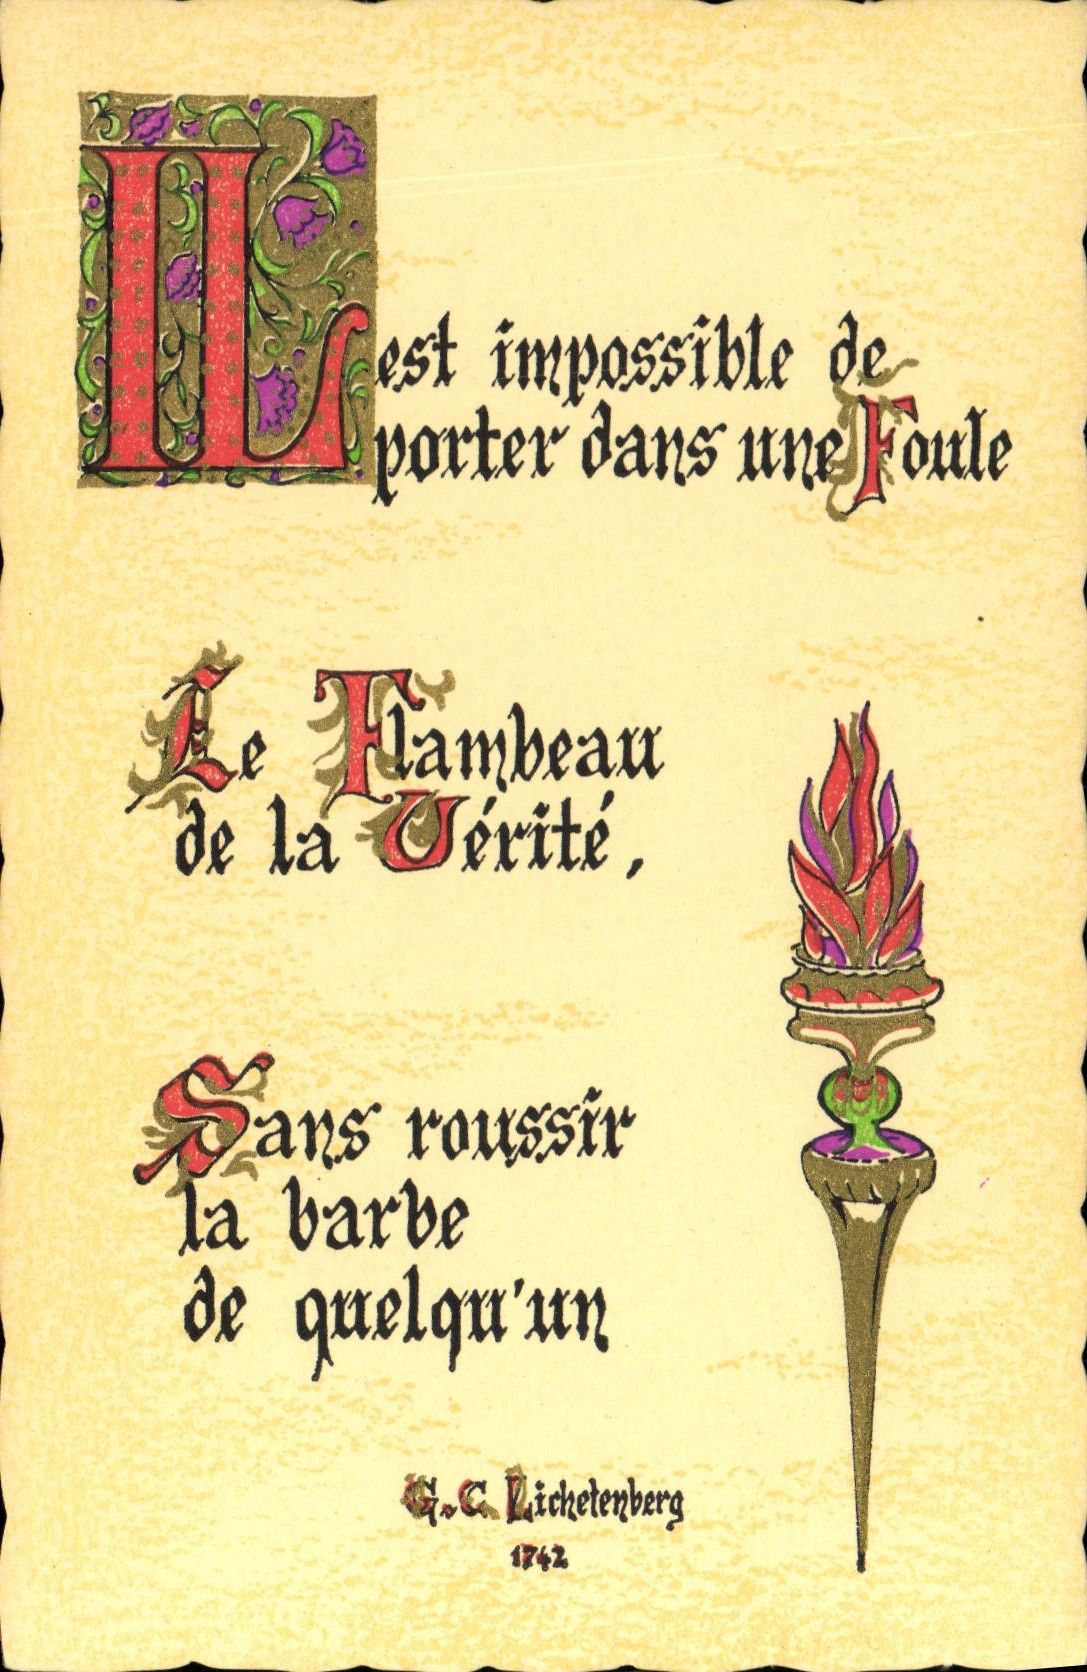 IL est impossible de
porter dans une Foule
Le Flambeau
de la Vérité,
Sans roussir
la barbe
de quelqu'un
G.C Lichetenberg
1742